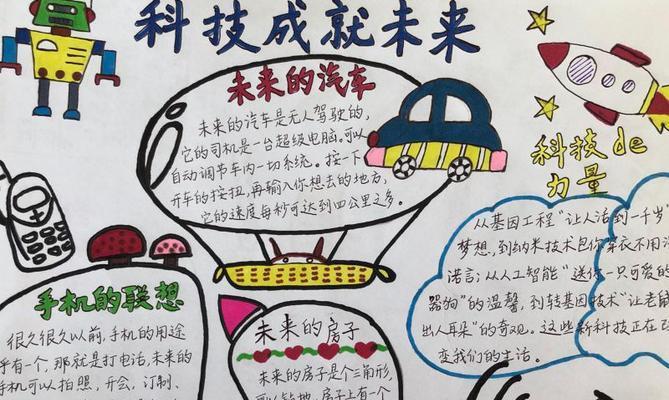 科技成就未来
未来的汽车
未来的汽车是无人驾驶的,
它的司机是一台超级电脑,可以
自动调节车内一切系统。按一下
开车的按扭,再输入你想去的地方,
它的速度每秒可达到四公里之多。
科技de
力量
从基因工程"让人活到一千岁"
梦想,到纳米技术包你穿衣不用洗
诺言;从人工智能"送你一只可爱的
器狗"的温馨,到转基因技术"让老鼠
出人耳朵"的奇观。这些新科技正在
变我们的生活。
手机的联想
很久很久以前,手机的用途
乎有一个,那就是打电话,未来的
手机可以拍照,开会,订制、
未来的房子
未来的房子是个三角形,
房子上有一个